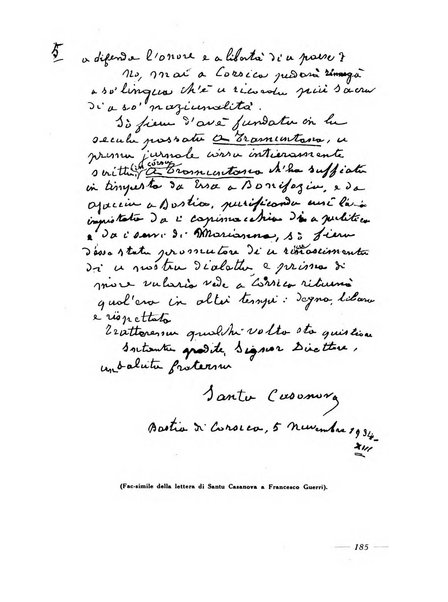 5
a difende l'onore e a libertà di u paese?
No, mai a Corsica pudarà rinnegà
a so' lingua ch'è u ricordu più sacru
di a so' naziunalità.
Sò fieru d'avé fundatu in lu
seculu passatu A Tramuntana, u
primu jurnale còrsu intieramente
scrittu in còrsu
A Tramuntana ch'ha suffiatu
in timpesta da Ersa a Bonifaziu, e da
Ajacciu a Bastia, purificendu
da i capimacchia di a pulitica
e da i servi di Marianna, sò fieru
d'esse statu promutore di u rinascimentu
di u nostru dialettu e prima di
more vularia vede a Còrsica riturnà
qual'era in altri tempi: degna, libara
e rispettata
Trattaremu qualchi volta sta quistione
Intantu gradite, Signor Direttore,
un saluta fraternu
Santu Casanova
Bastia di Corsica, 5 Nuvembre 1934-
XIII
(Fac-simile della lettera di Santu Casanova a Francesco Guerri).
185